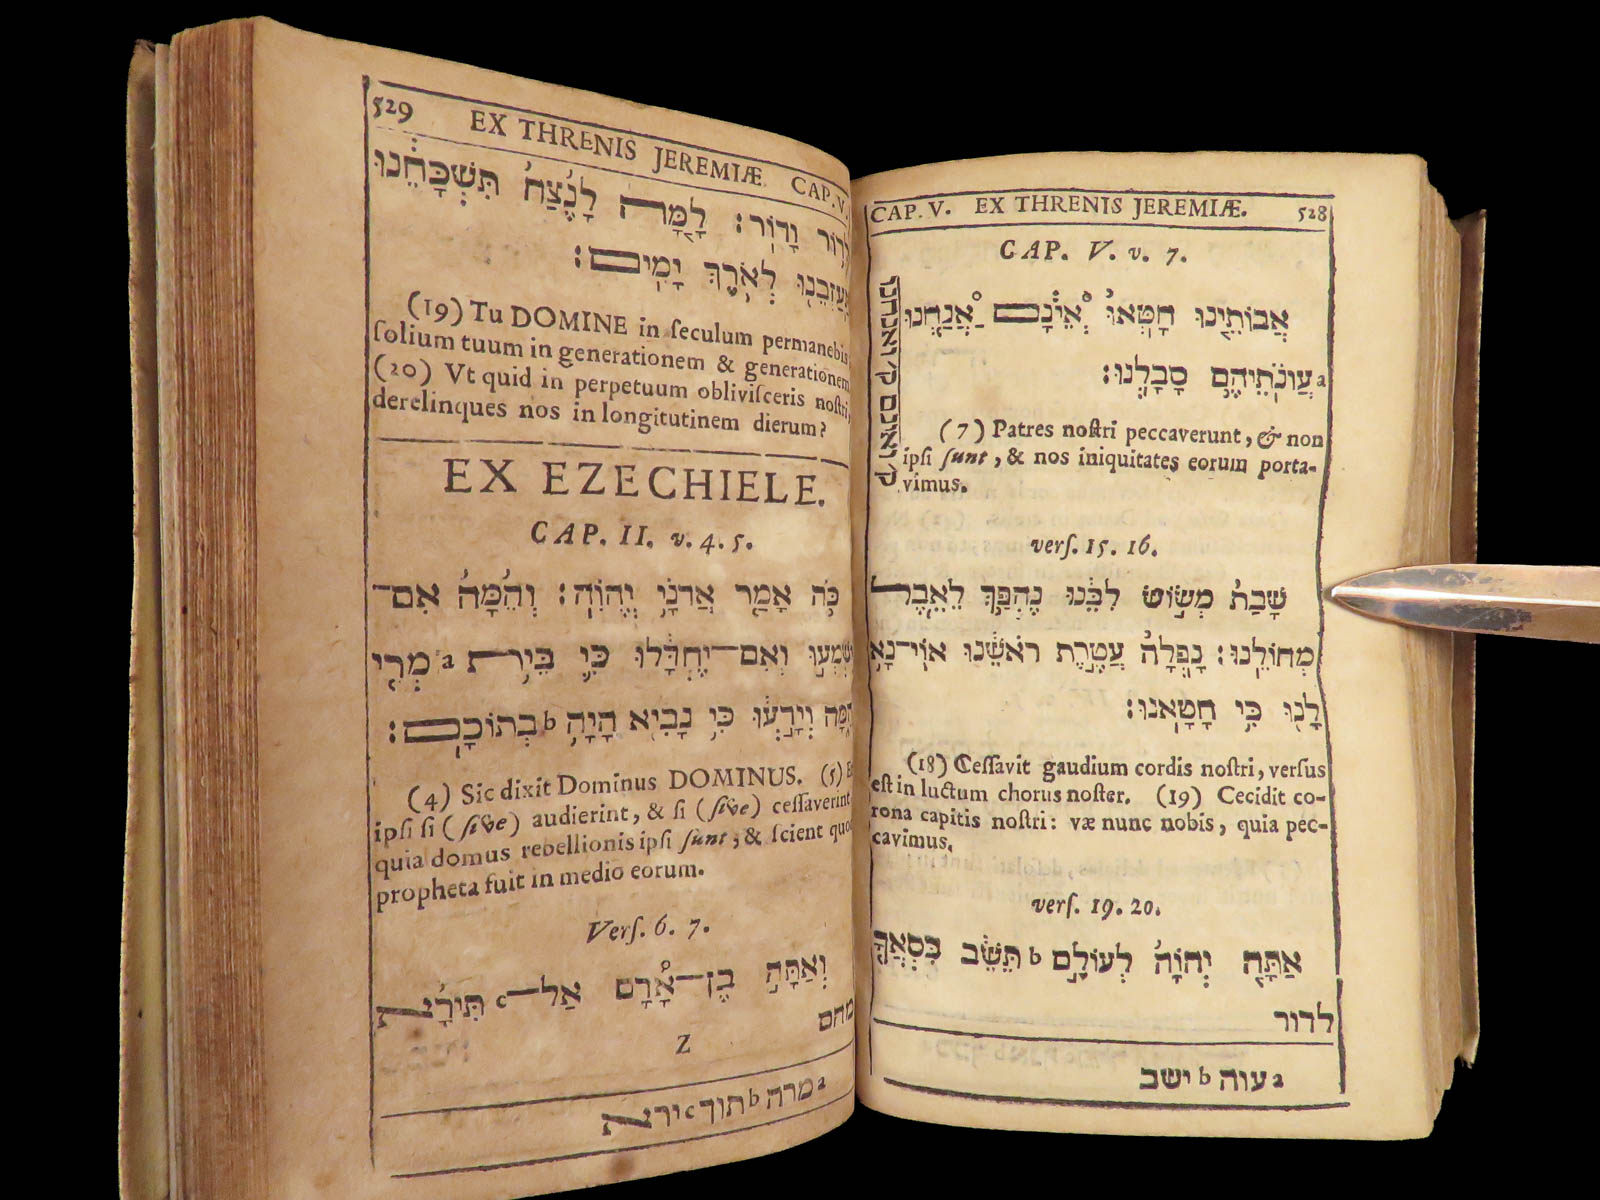 CAP. V. EX THRENIS JEREMIÆ. 528
CAP. V. v. 7.
אֲבוֹתֵינוּ חָטְאוּ ְאֵינָם ַאֲנַחְנוּ
a עֲוֺנֹתֵיהֶם סָבָלְנוּ׃
ק׳ ואינם ק׳ ואנחנו
(7) Patres noſtri peccaverunt, & non
ipſi ſunt, & nos iniquitates eorum porta-
vimus.
verſ. 15. 16.
שָׁבַת מְשׂוֹשׂ לִבֵּנוּ נֶהְפַּךְ לְאֵבֶל
מְחוֹלֵנוּ׃ נָפְלָה עֲטֶרֶת רֹאשֵׁנוּ אוֹי־נָא
לָנוּ כִּי חָטָאנוּ׃
(18) Ceſſavit gaudium cordis noſtri, verſus
eſt in luctum chorus noſter. (19) Cecidit co-
rona capitis noſtri: væ nunc nobis, quia pec-
cavimus.
verſ. 19. 20.
אַתָּה יְהוָֹה לְעוֹלָם b תֵּשֵׁב כִּסְאֲךָ
לדור
a עוה b ישב
529 EX THRENIS JEREMIÆ. CAP. V.
לְדוֹר וָדוֹר׃ לָמָּה לָנֶצַח תִּשְׁכָּחֵנוּ
תַּעַזְבֵנוּ לְאֹרֶךְ יָמִים׃
(19) Tu DOMINE in ſeculum permanebis
ſolium tuum in generationem & generationem
(20) Vt quid in perpetuum obliviſceris noſtri,
derelinques nos in longitutinem dierum?
EX EZECHIELE.
CAP. II. v. 4. 5.
כֹּה אָמַר אֲדֹנָי יְהוִֹה׃ וְהֵמָּה אִם־
יִשְׁמְעוּ וְאִם־יֶחְדָּלוּ כִּי בֵּית a מְרִי
הֵמָּה וְיָדְעוּ כִּי נָבִיא הָיָה b בְתוֹכָם׃
(4) Sic dixit Dominus DOMINUS. (5) Et
ipſi ſi (ſive) audierint, & ſi (ſive) ceſſaverint
quia domus rebellionis ipſi ſunt, & ſcient quod
propheta fuit in medio eorum.
Verſ. 6. 7.
וְאַתָּה בֶן־אָדָם אַל־ c תִּירָא
מהם
Z
a מרה b תוך c ירא